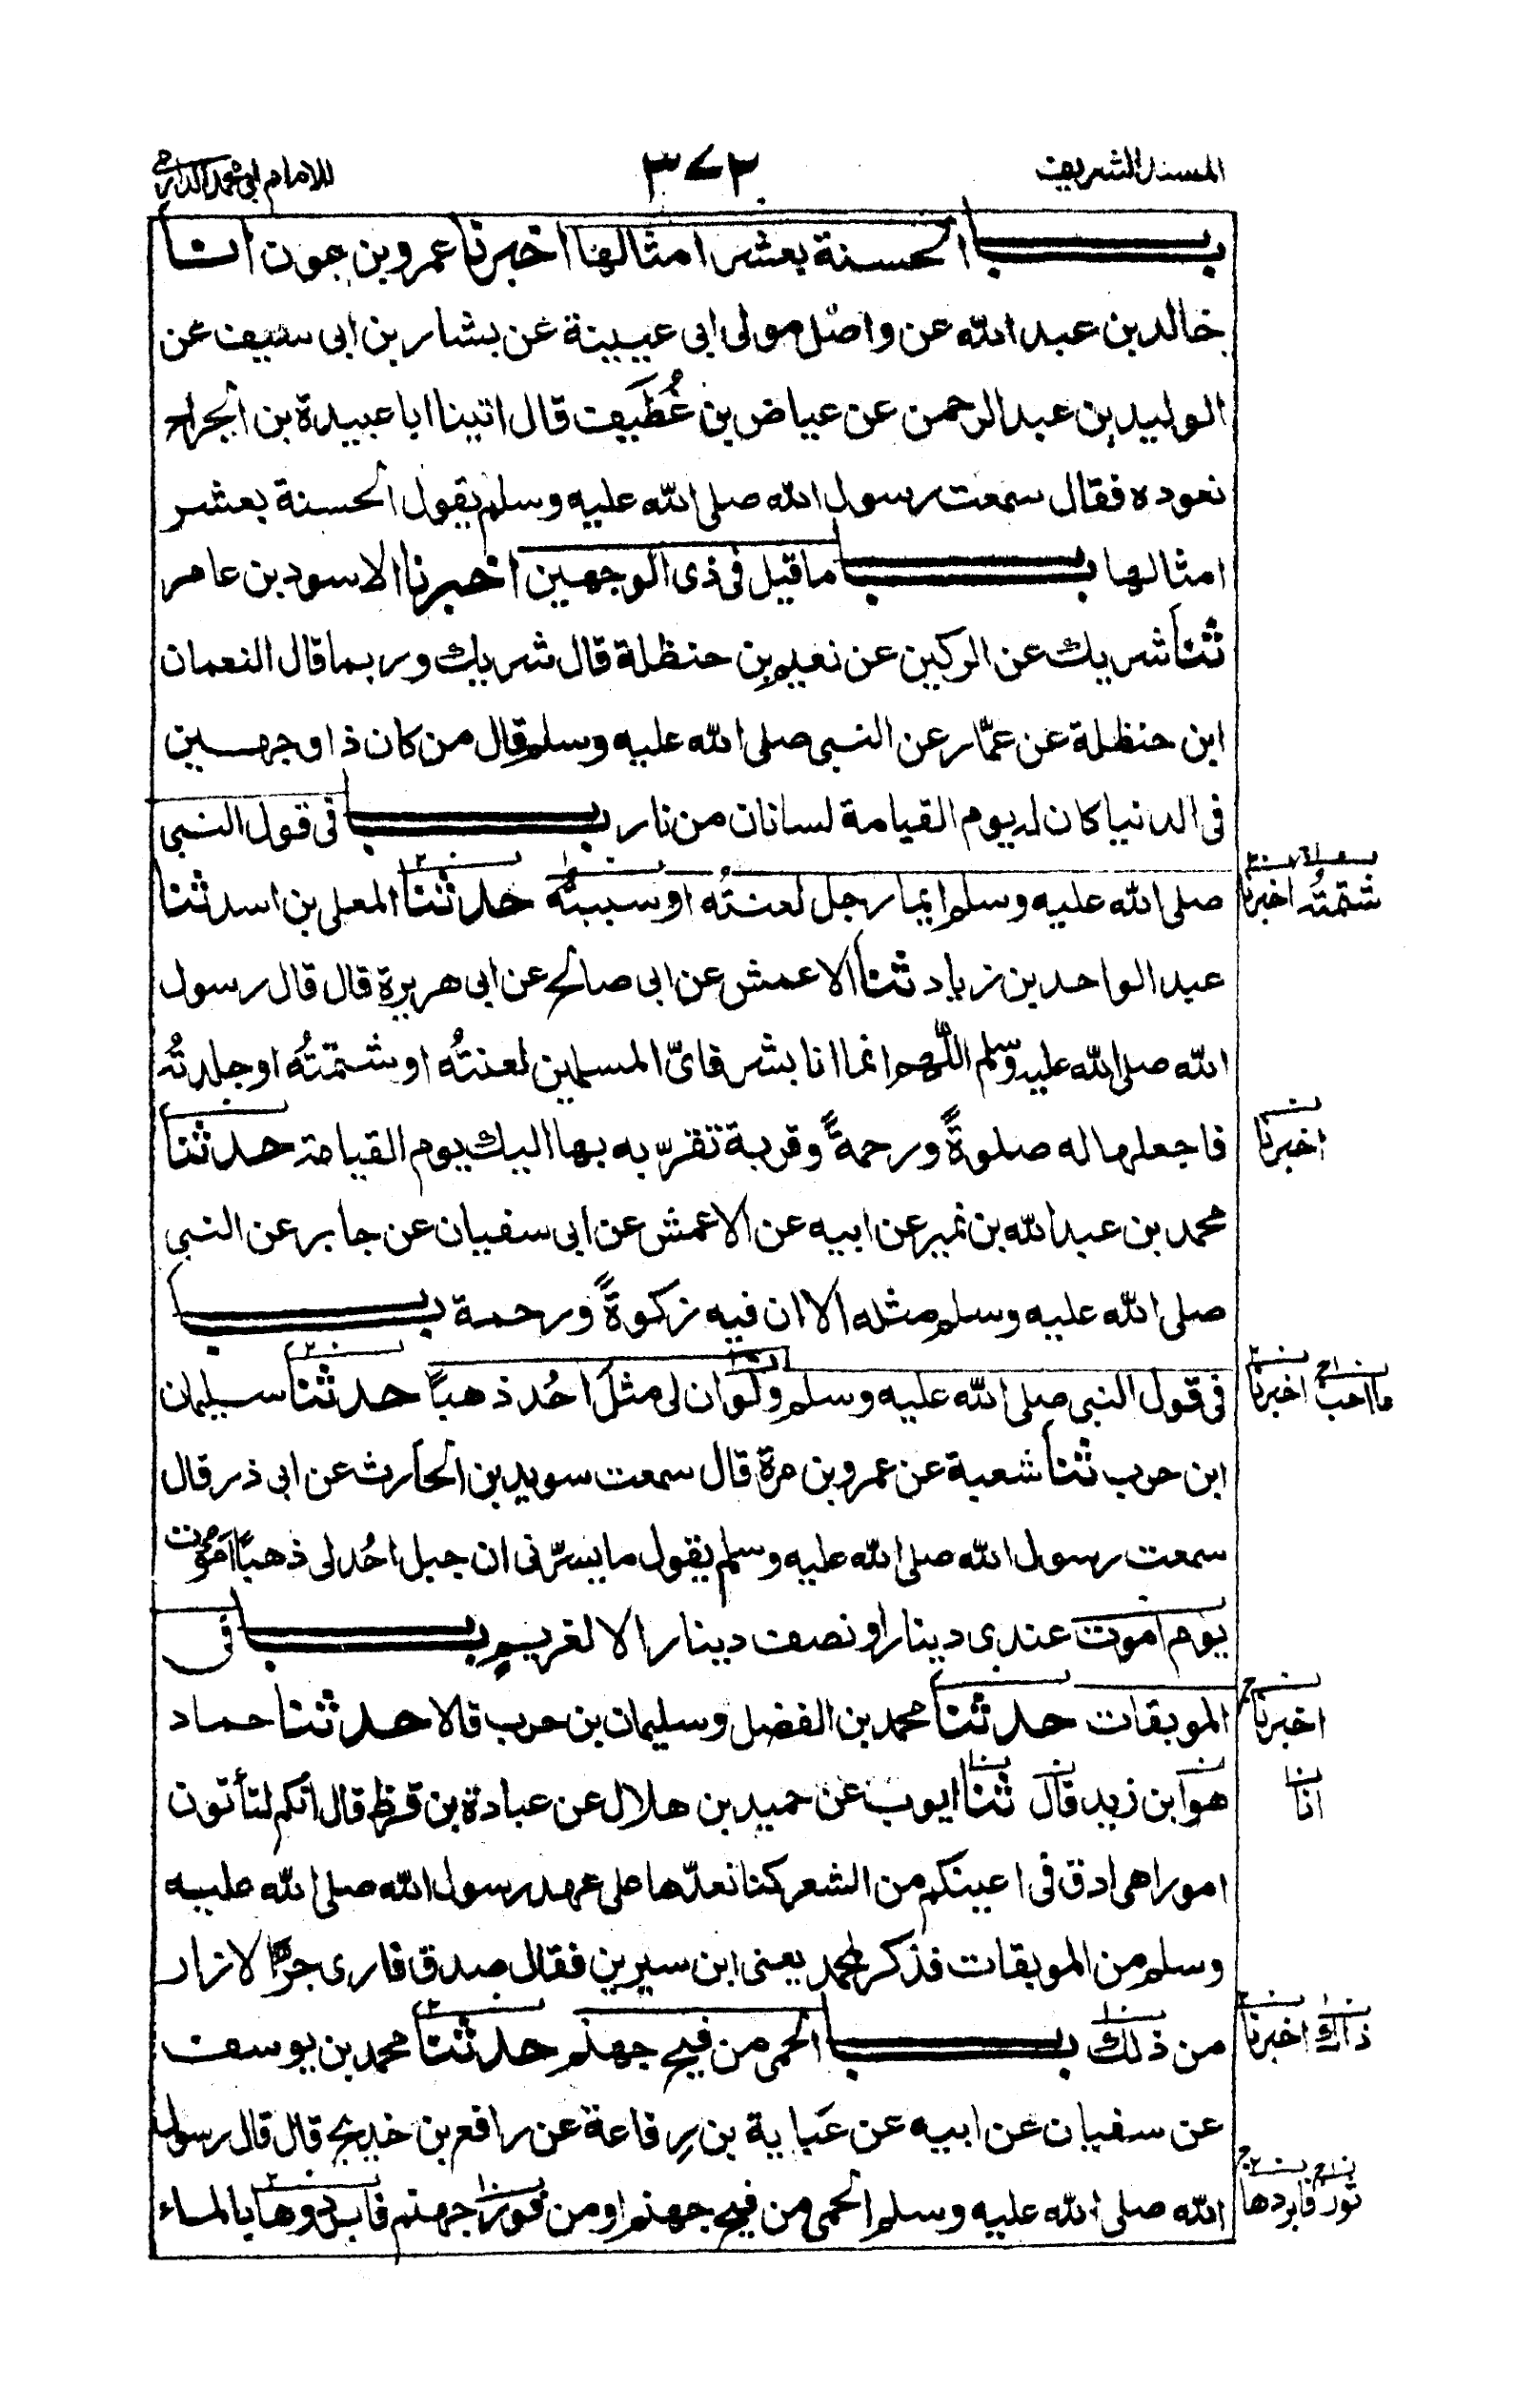 المسند الشريف ٣٧٢ للامام ابى محمد الدارمى
باب الحسنة بعشر امثالها اخبرنا عمرو بن عون انا
خالد بن عبد الله عن واصل مولى ابى عيينة عن بشار بن ابى سيف عن
الوليد بن عبد الرحمن عن عياض بن غُطَيف قال اتينا ابا عبيدة بن الجراح
نعوده فقال سمعت رسول الله صلى الله عليه وسلم يقول الحسنة بعشر
امثالها باب ما قيل فى ذى الوجهين اخبرنا الاسود بن عامر
ثنا شريك عن الركين عن نعيم بن حنظلة قال شريك وربما قال النعمان
ابن حنظلة عن عمّار عن النبى صلى الله عليه وسلم قال من كان ذا وجهين
فى الدنيا كان له يوم القيامة لسانان من نار باب فى قول النبى
صلى الله عليه وسلم ايما رجل لعنتُه او سببتُه حدثنا المعلى بن اسد ثنا
شتمتُه اخبرنا
عبد الواحد بن زياد ثنا الاعمش عن ابى صالح عن ابى هريرة قال قال رسول
الله صلى الله عليه وسلم اللّهم انما انا بشر فاىّ المسلمين لعنتُه او شتمتُه او جلدتُه
فاجعلها له صلوةً ورحمةً وقربة تقرّبه بها اليك يوم القيامة حدثنا
اخبرنا
محمد بن عبد الله بن نمير عن ابيه عن الاعمش عن ابى سفيان عن جابر عن النبى
صلى الله عليه وسلم مثله الا ان فيه زكوةً ورحمة باب
فى قول النبى صلى الله عليه وسلم ولو ان لى مثل احُد ذهبًا حدثنا سليمان
ما احب اخبرنا
ابن حرب ثنا شعبة عن عمرو بن مرة قال سمعت سويد بن الحارث عن ابى ذر قال
سمعت رسول الله صلى الله عليه وسلم يقول ما يسرّنى ان جبل احُد لى ذهبًا اموت
يوم اموت عندى دينار او نصف دينار الا لغريم باب فى
الموبقات حدثنا محمد بن الفضل وسليمان بن حرب قالا حدثنا حماد
اخبرنا
هو ابن زيد قال ثنا ايوب عن حميد بن هلال عن عبادة بن قرط قال انكم لتأتون
انا
امورا هى ادق فى اعينكم من الشعر كنا نعدّها على عهد رسول الله صلى الله عليه
وسلم من الموبقات فذكر لمحمد يعنى ابن سيرين فقال صدق فارى جرّ الازار
من ذلك باب الحمى من فيح جهنم حدثنا محمد بن يوسف
ذاك اخبرنا
عن سفيان عن ابيه عن عَباية بن رِفاعة عن رافع بن خديج قال قال رسول
الله صلى الله عليه وسلم الحمى من فيح جهنم او من فور جهنم فابردوها بالماء
فابردها